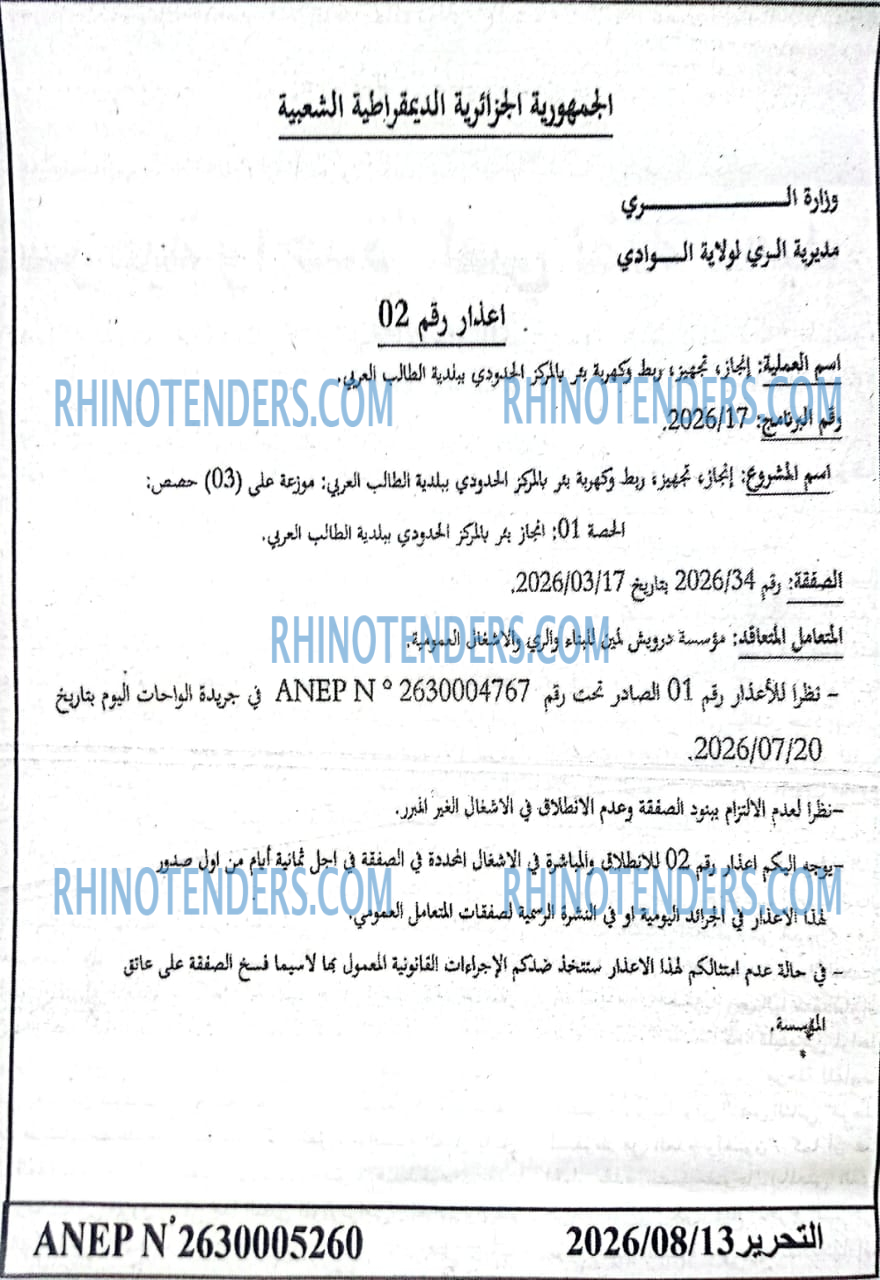 الجمهورية الجزائرية الديمقراطية الشعبية
وزارة الـــــــــــري
مديرية الري لولاية الـــوادي
اعذار رقم 02
اسم العملية: إنجاز، تجهيز، ربط وكهربة بئر بالمركز الحدودي ببلدية الطالب العربي.
RHINOTENDERS.COM RHINOTENDERS.COM
رقم البرنامج: 2026/17.
اسم المشروع: إنجاز، تجهيز، ربط وكهربة بئر بالمركز الحدودي ببلدية الطالب العربي: موزعة على (03) حصص:
الحصة 01: انجاز بئر بالمركز الحدودي ببلدية الطالب العربي.
الصفقة: رقم 2026/34 بتاريخ 2026/03/17.
المتعامل المتعاقد: مؤسسة درويش لمين للبناء والري والاشغال العمومية.
RHINOTENDERS.COM
- نظرا للأعذار رقم 01 الصادر تحت رقم ANEP N ° 2630004767 في جريدة الواحات اليوم بتاريخ
2026/07/20.
-نظرا لعدم الالتزام ببنود الصفقة وعدم الانطلاق في الاشغال الغير المبرر.
-يوجه اليكم اعذار رقم 02 للانطلاق والمباشرة في الاشغال المحددة في الصفقة في اجل ثمانية أيام من اول صدور
RHINOTENDERS.COM RHINOTENDERS.COM
لهذا الاعذار في الجرائد اليومية او في النشرة الرسمية لصفقات المتعامل العمومي.
- في حالة عدم امتثالكم لهذا الاعذار ستتخذ ضدكم الإجراءات القانونية المعمول بها لاسيما فسخ الصفقة على عاتق
المؤسسة.
التحرير 2026/08/13
ANEP N° 2630005260